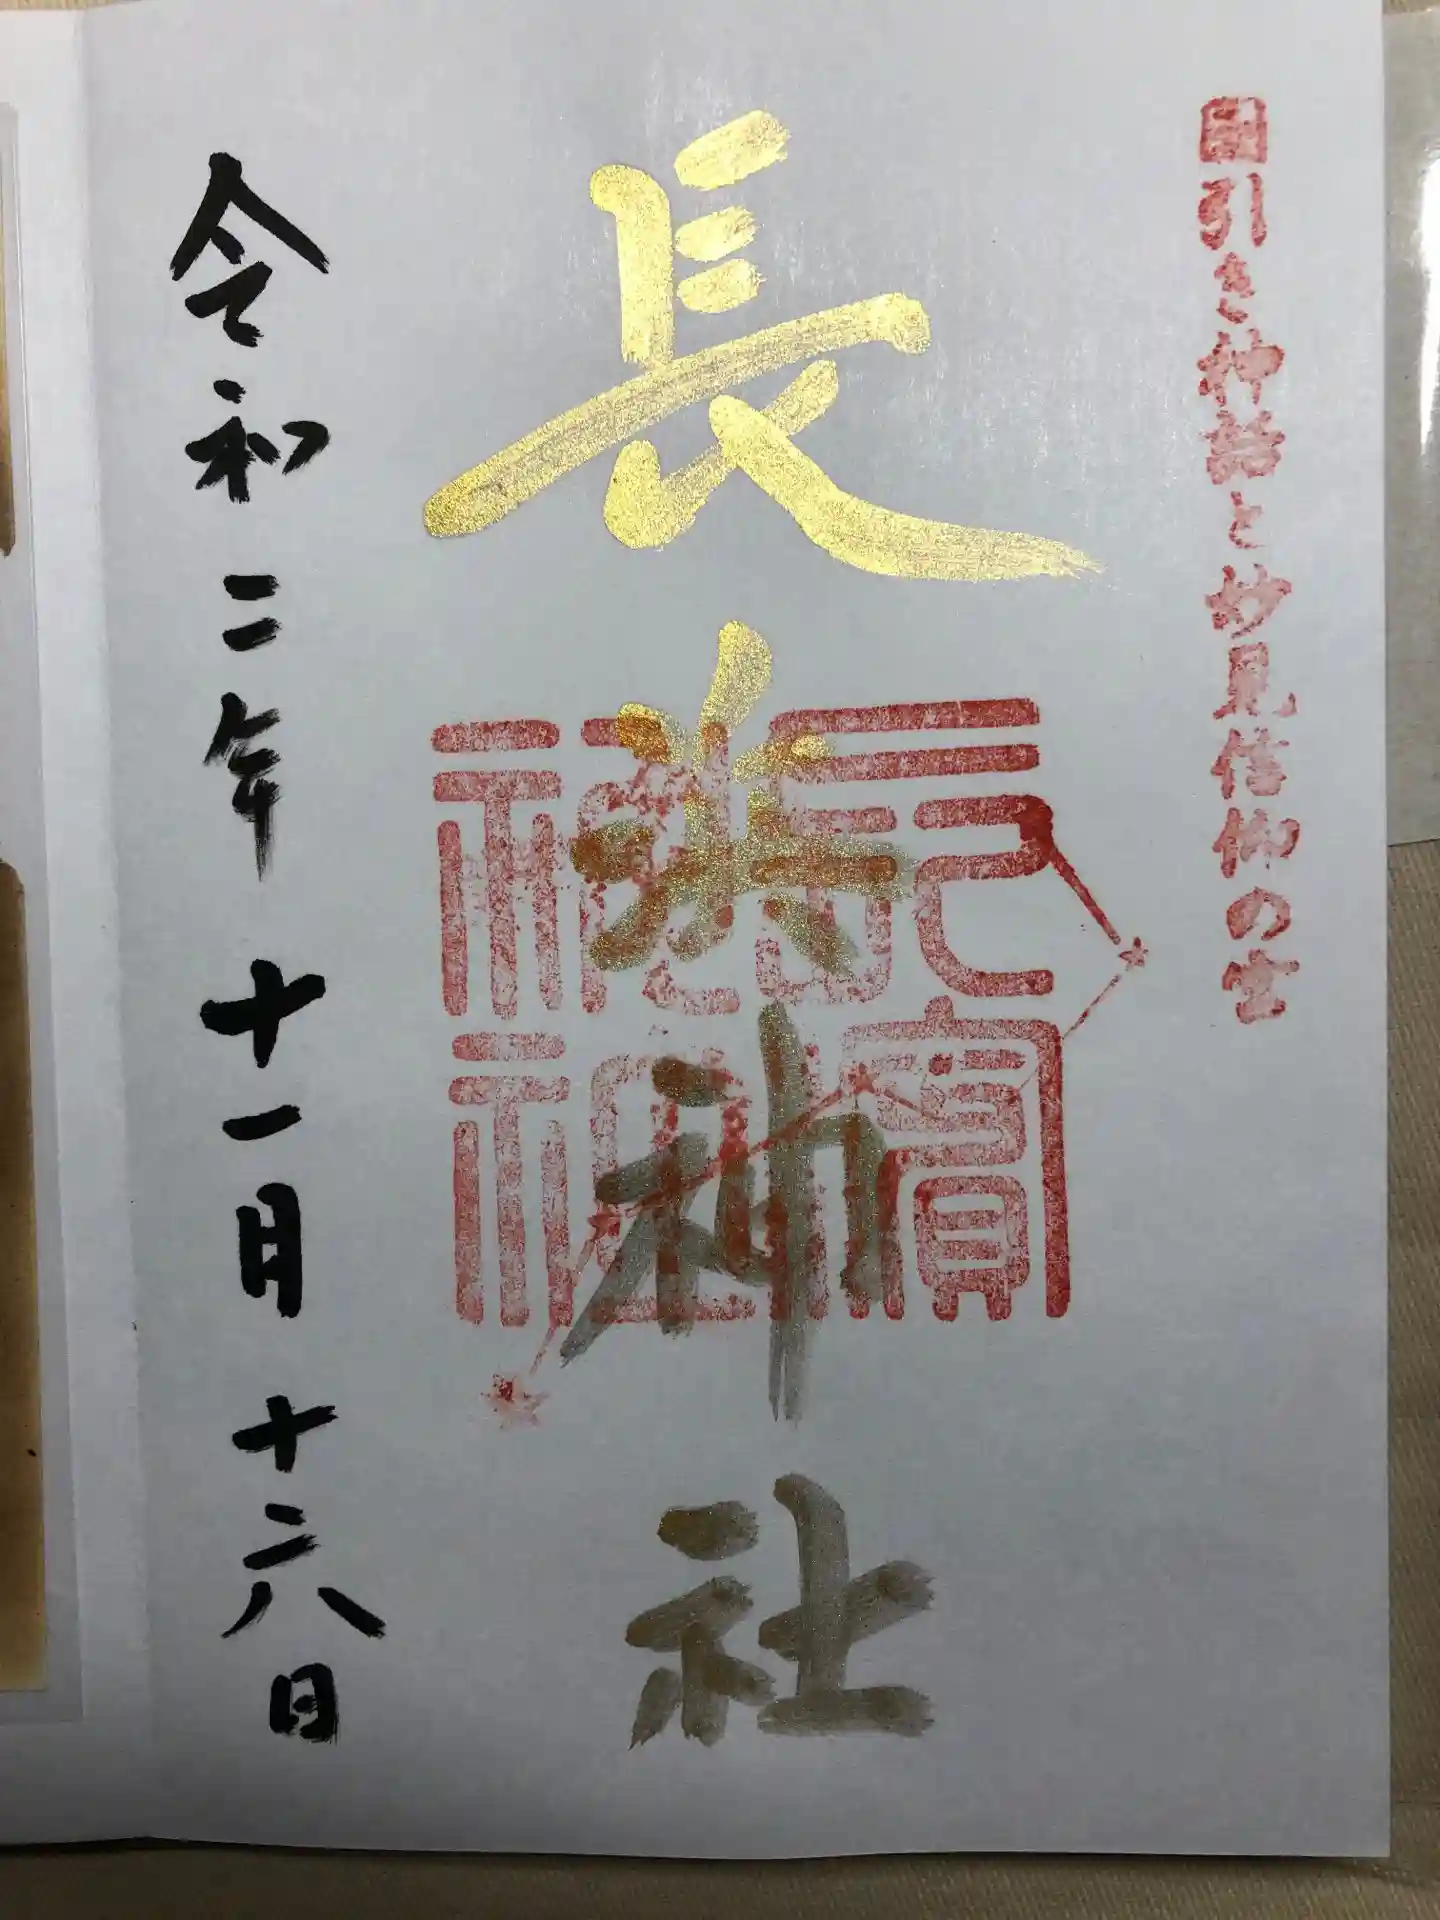 國引き神話と妙見信仰の宮
長浜神社
長濱神社
令和二年十一月十六日